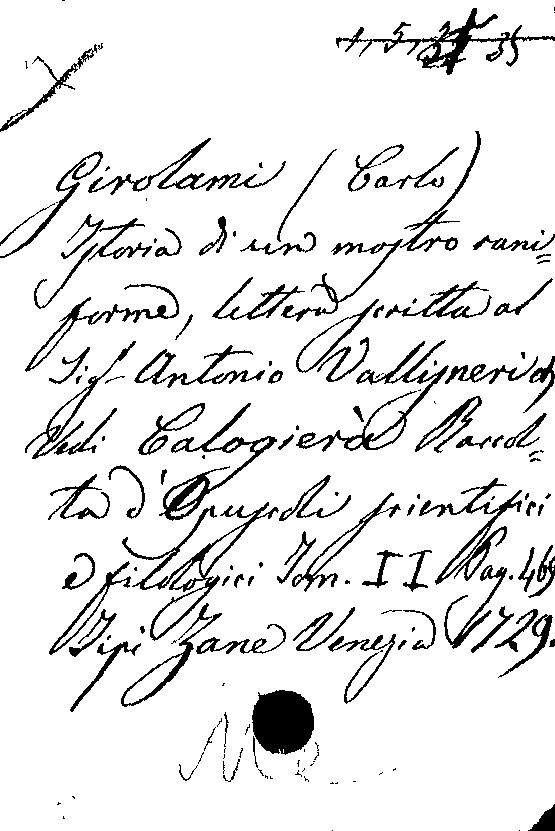 Girolami (Carlo)
Istoria di un mostro rani=
forme, lettera scritta al
Sig.r Antonio Vallisneri
Vedi Calogierà Raccol=
ta d'Opuscoli scientifici
e filologici Tom. II Pag. 469
Tipi Zane Venezia 1729.